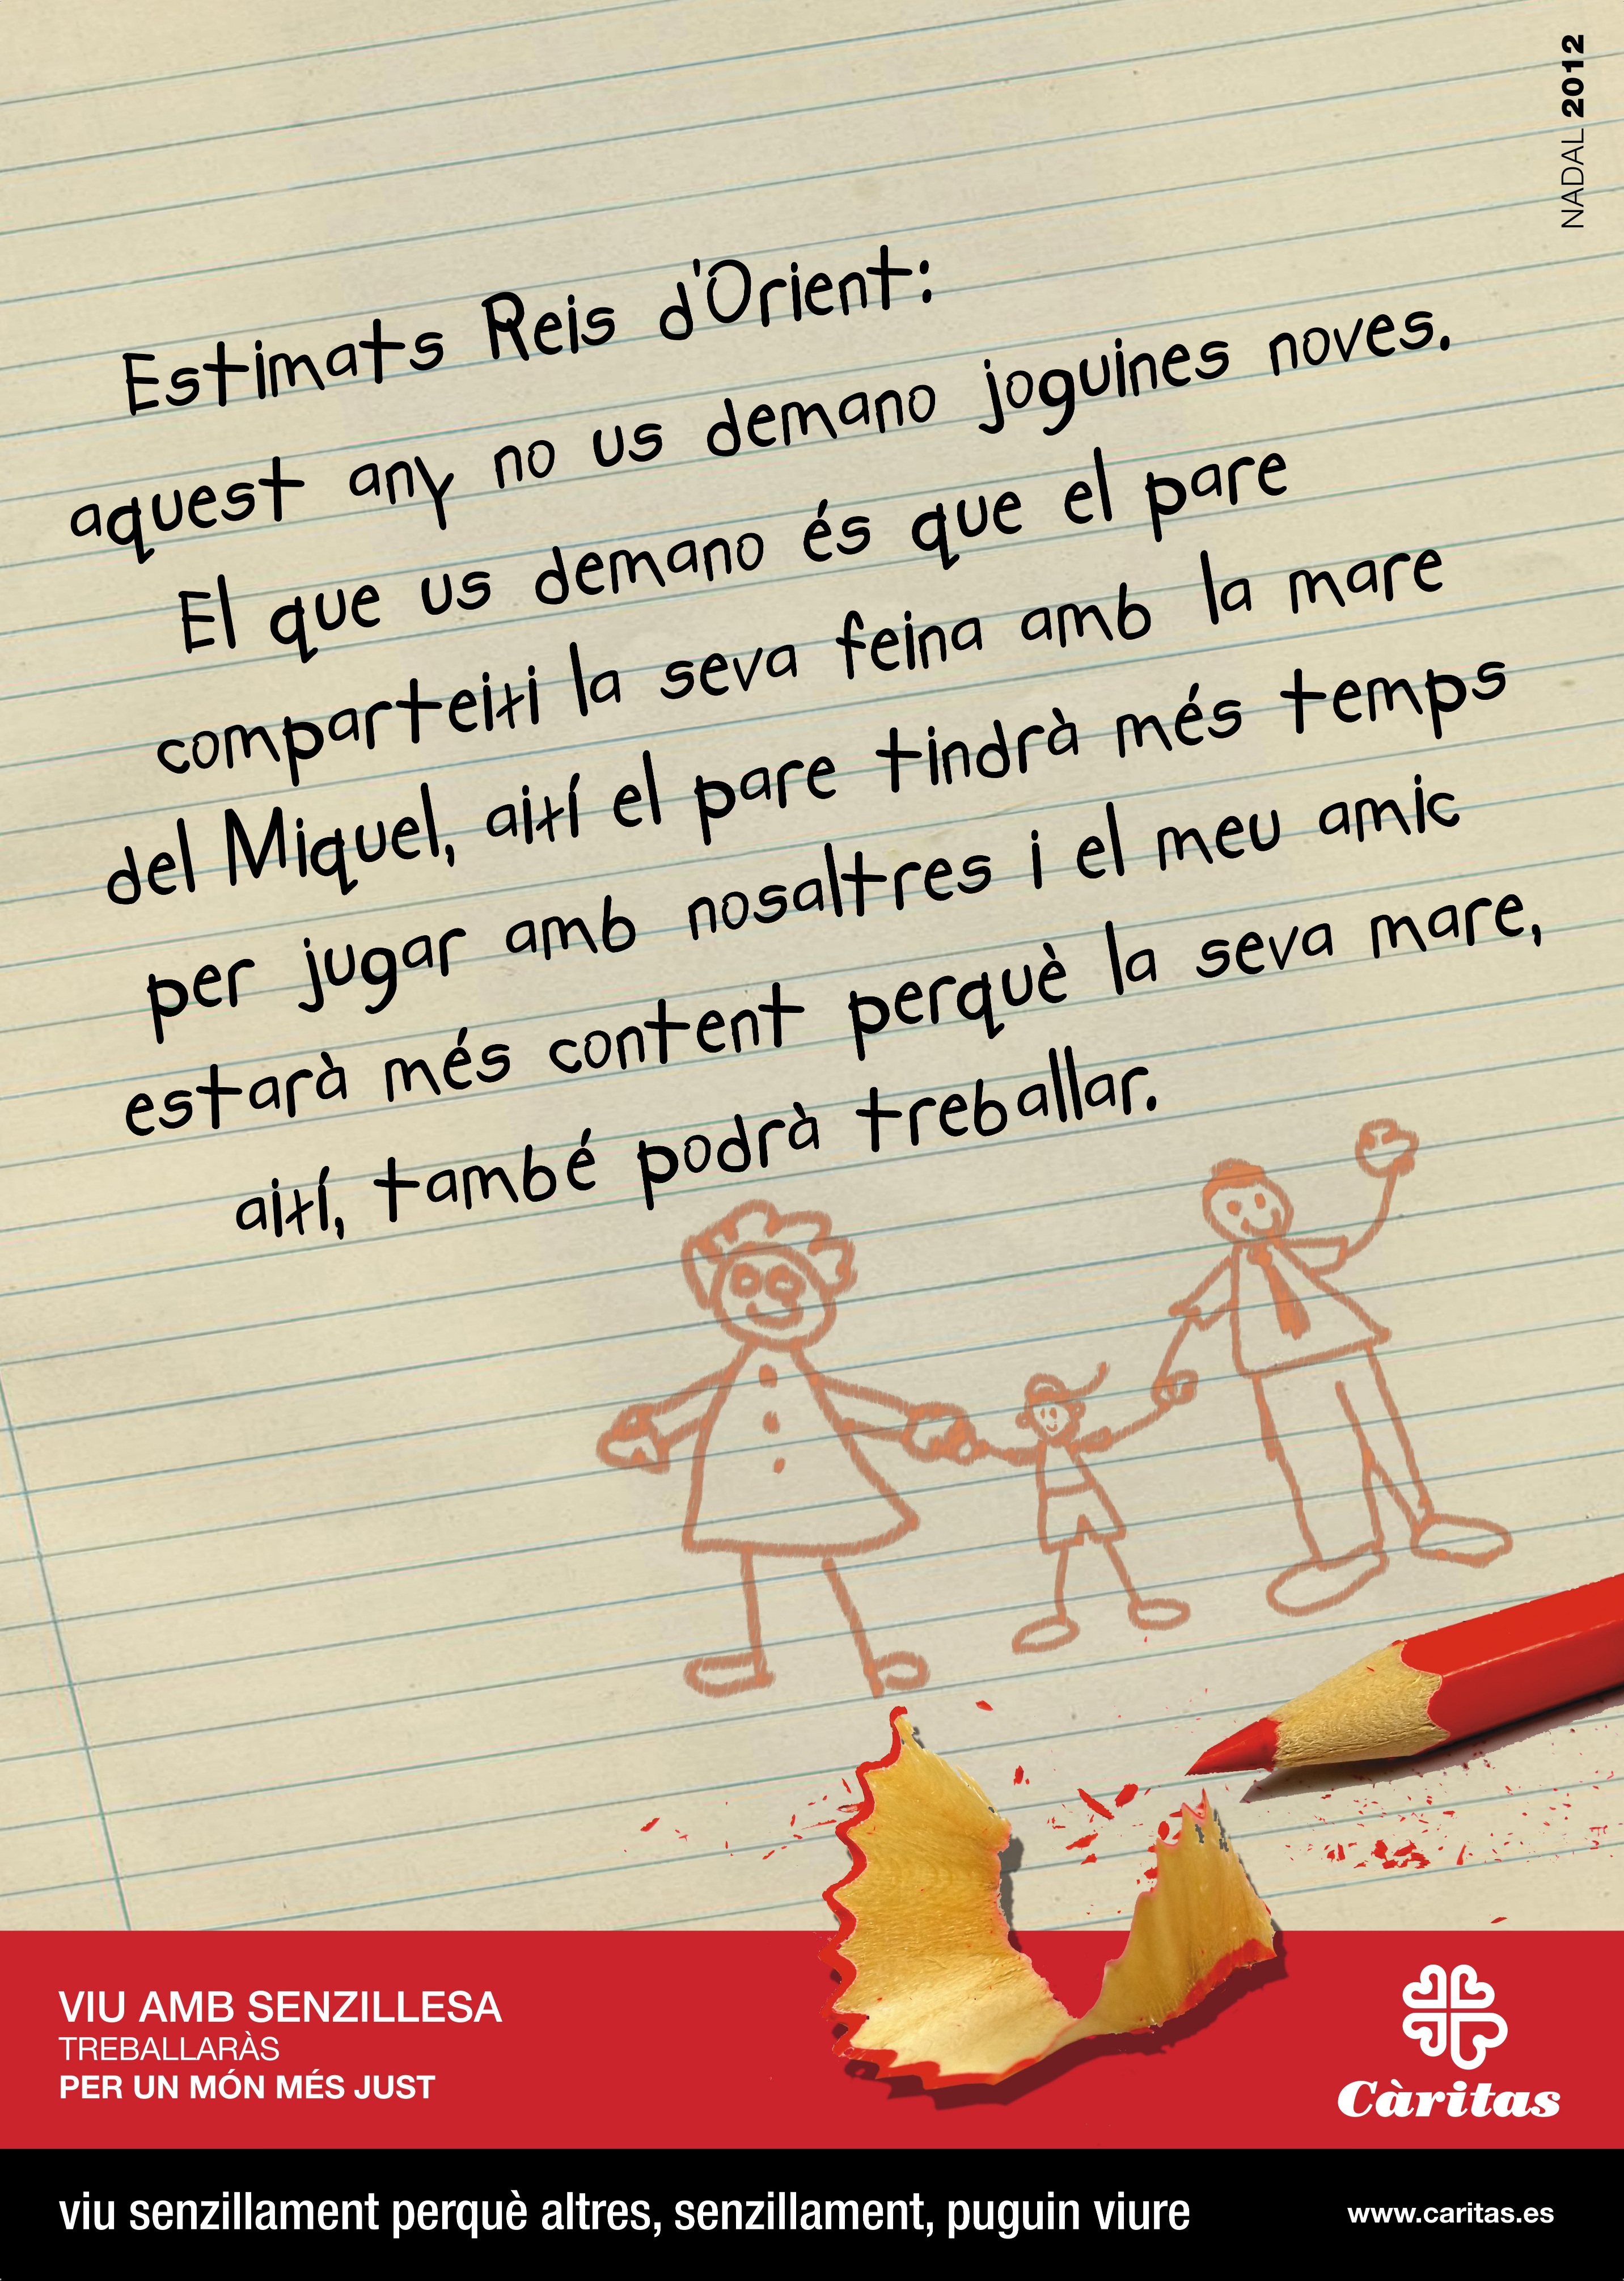 NADAL 2012
Estimats Reis d'Orient:
aquest any no us demano joguines noves.
El que us demano és que el pare
comparteixi la seva feina amb la mare
del Miquel, així el pare tindrà més temps
per jugar amb nosaltres i el meu amic
estarà més content perquè la seva mare,
així, també podrà treballar.
VIU AMB SENZILLESA
TREBALLARÀS
PER UN MÓN MÉS JUST
Càritas
viu senzillament perquè altres, senzillament, puguin viure
www.caritas.es